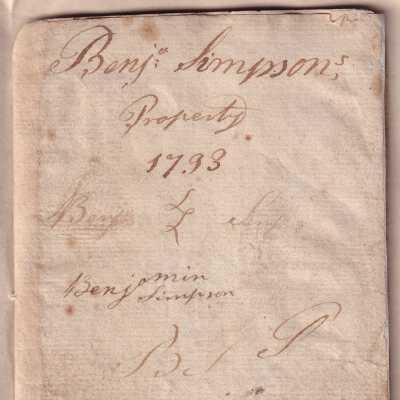 Benjᵃ: Simpsonˢ,
Property
1793
Benj Simp
Benjamin
Simpson
B S P